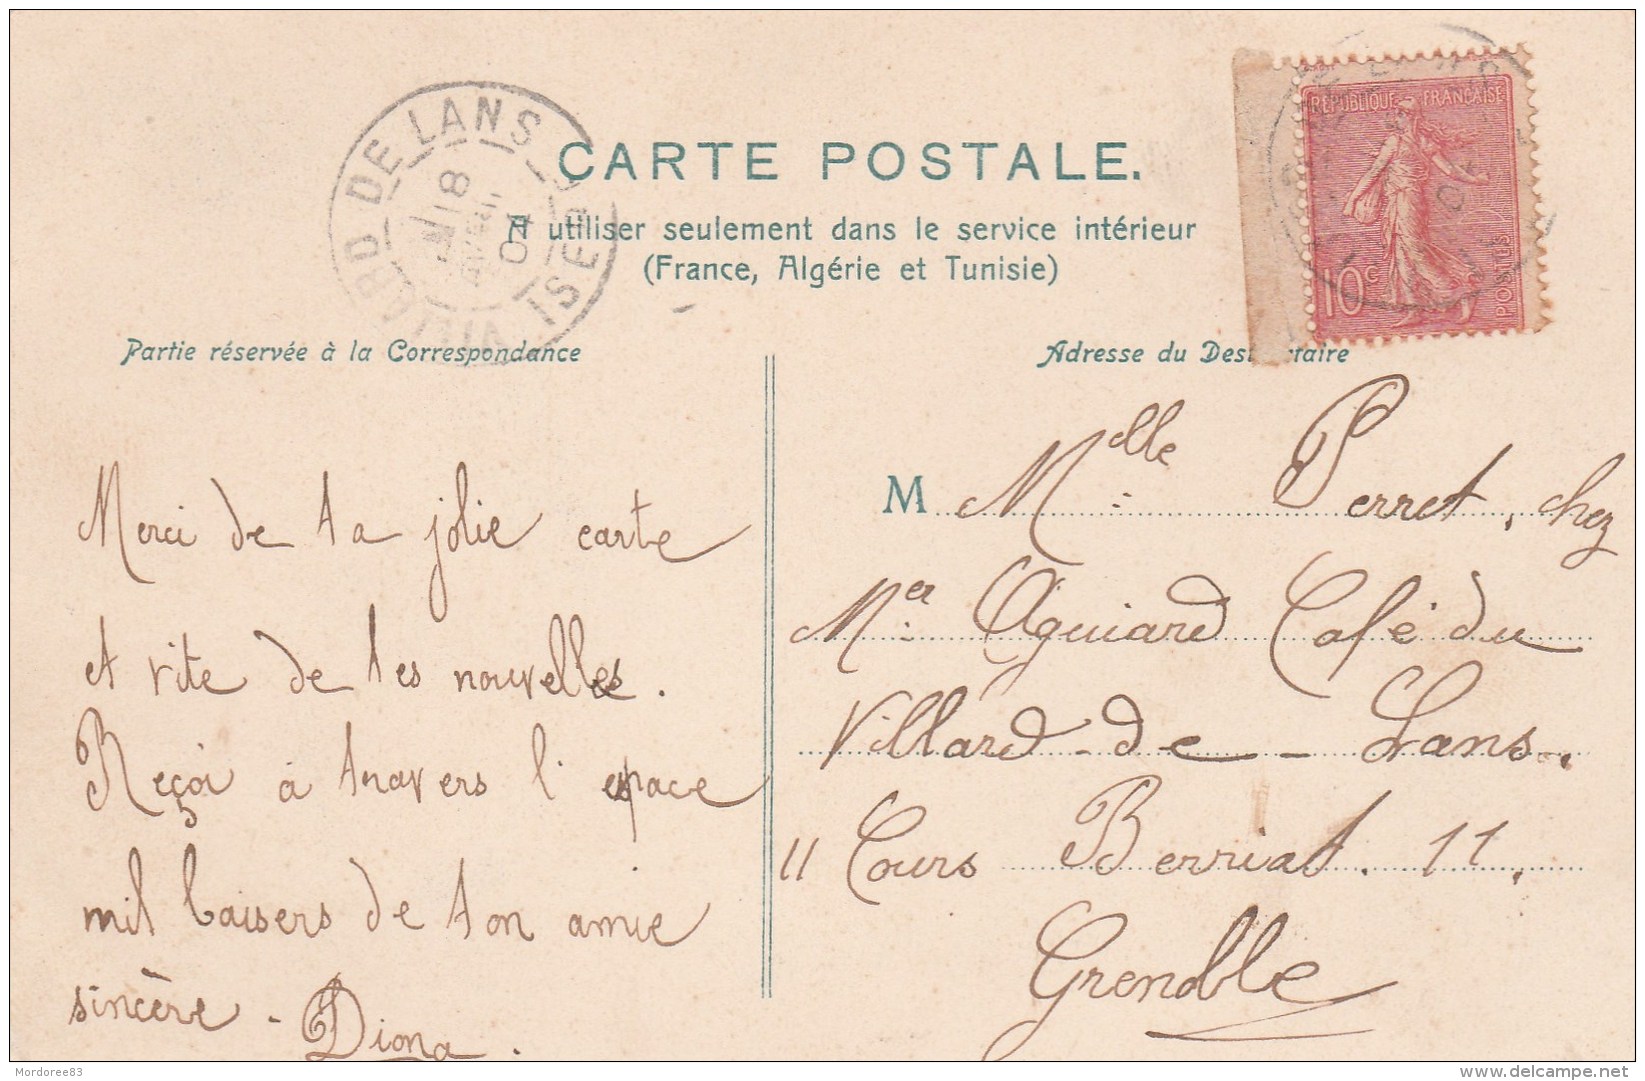 CARTE POSTALE.
A utiliser seulement dans le service intérieur
(France, Algérie et Tunisie)
DE LANS
ISÈRE
18
04
REPUBLIQUE FRANÇAISE
10c
POSTES
Partie réservée à la Correspondance
Merci de ta jolie carte
et vite de tes nouvelles.
Reçoi à travers l'espace
mil baisers de ton amie
sincère - Diona.
Adresse du Desti taire
M Melle Perret, chez
Mer Aguiard Café du
Villard-de-Lans.
11 Cours Berriat. 11.
Grenoble
Mordoree83
www.delcampe.net